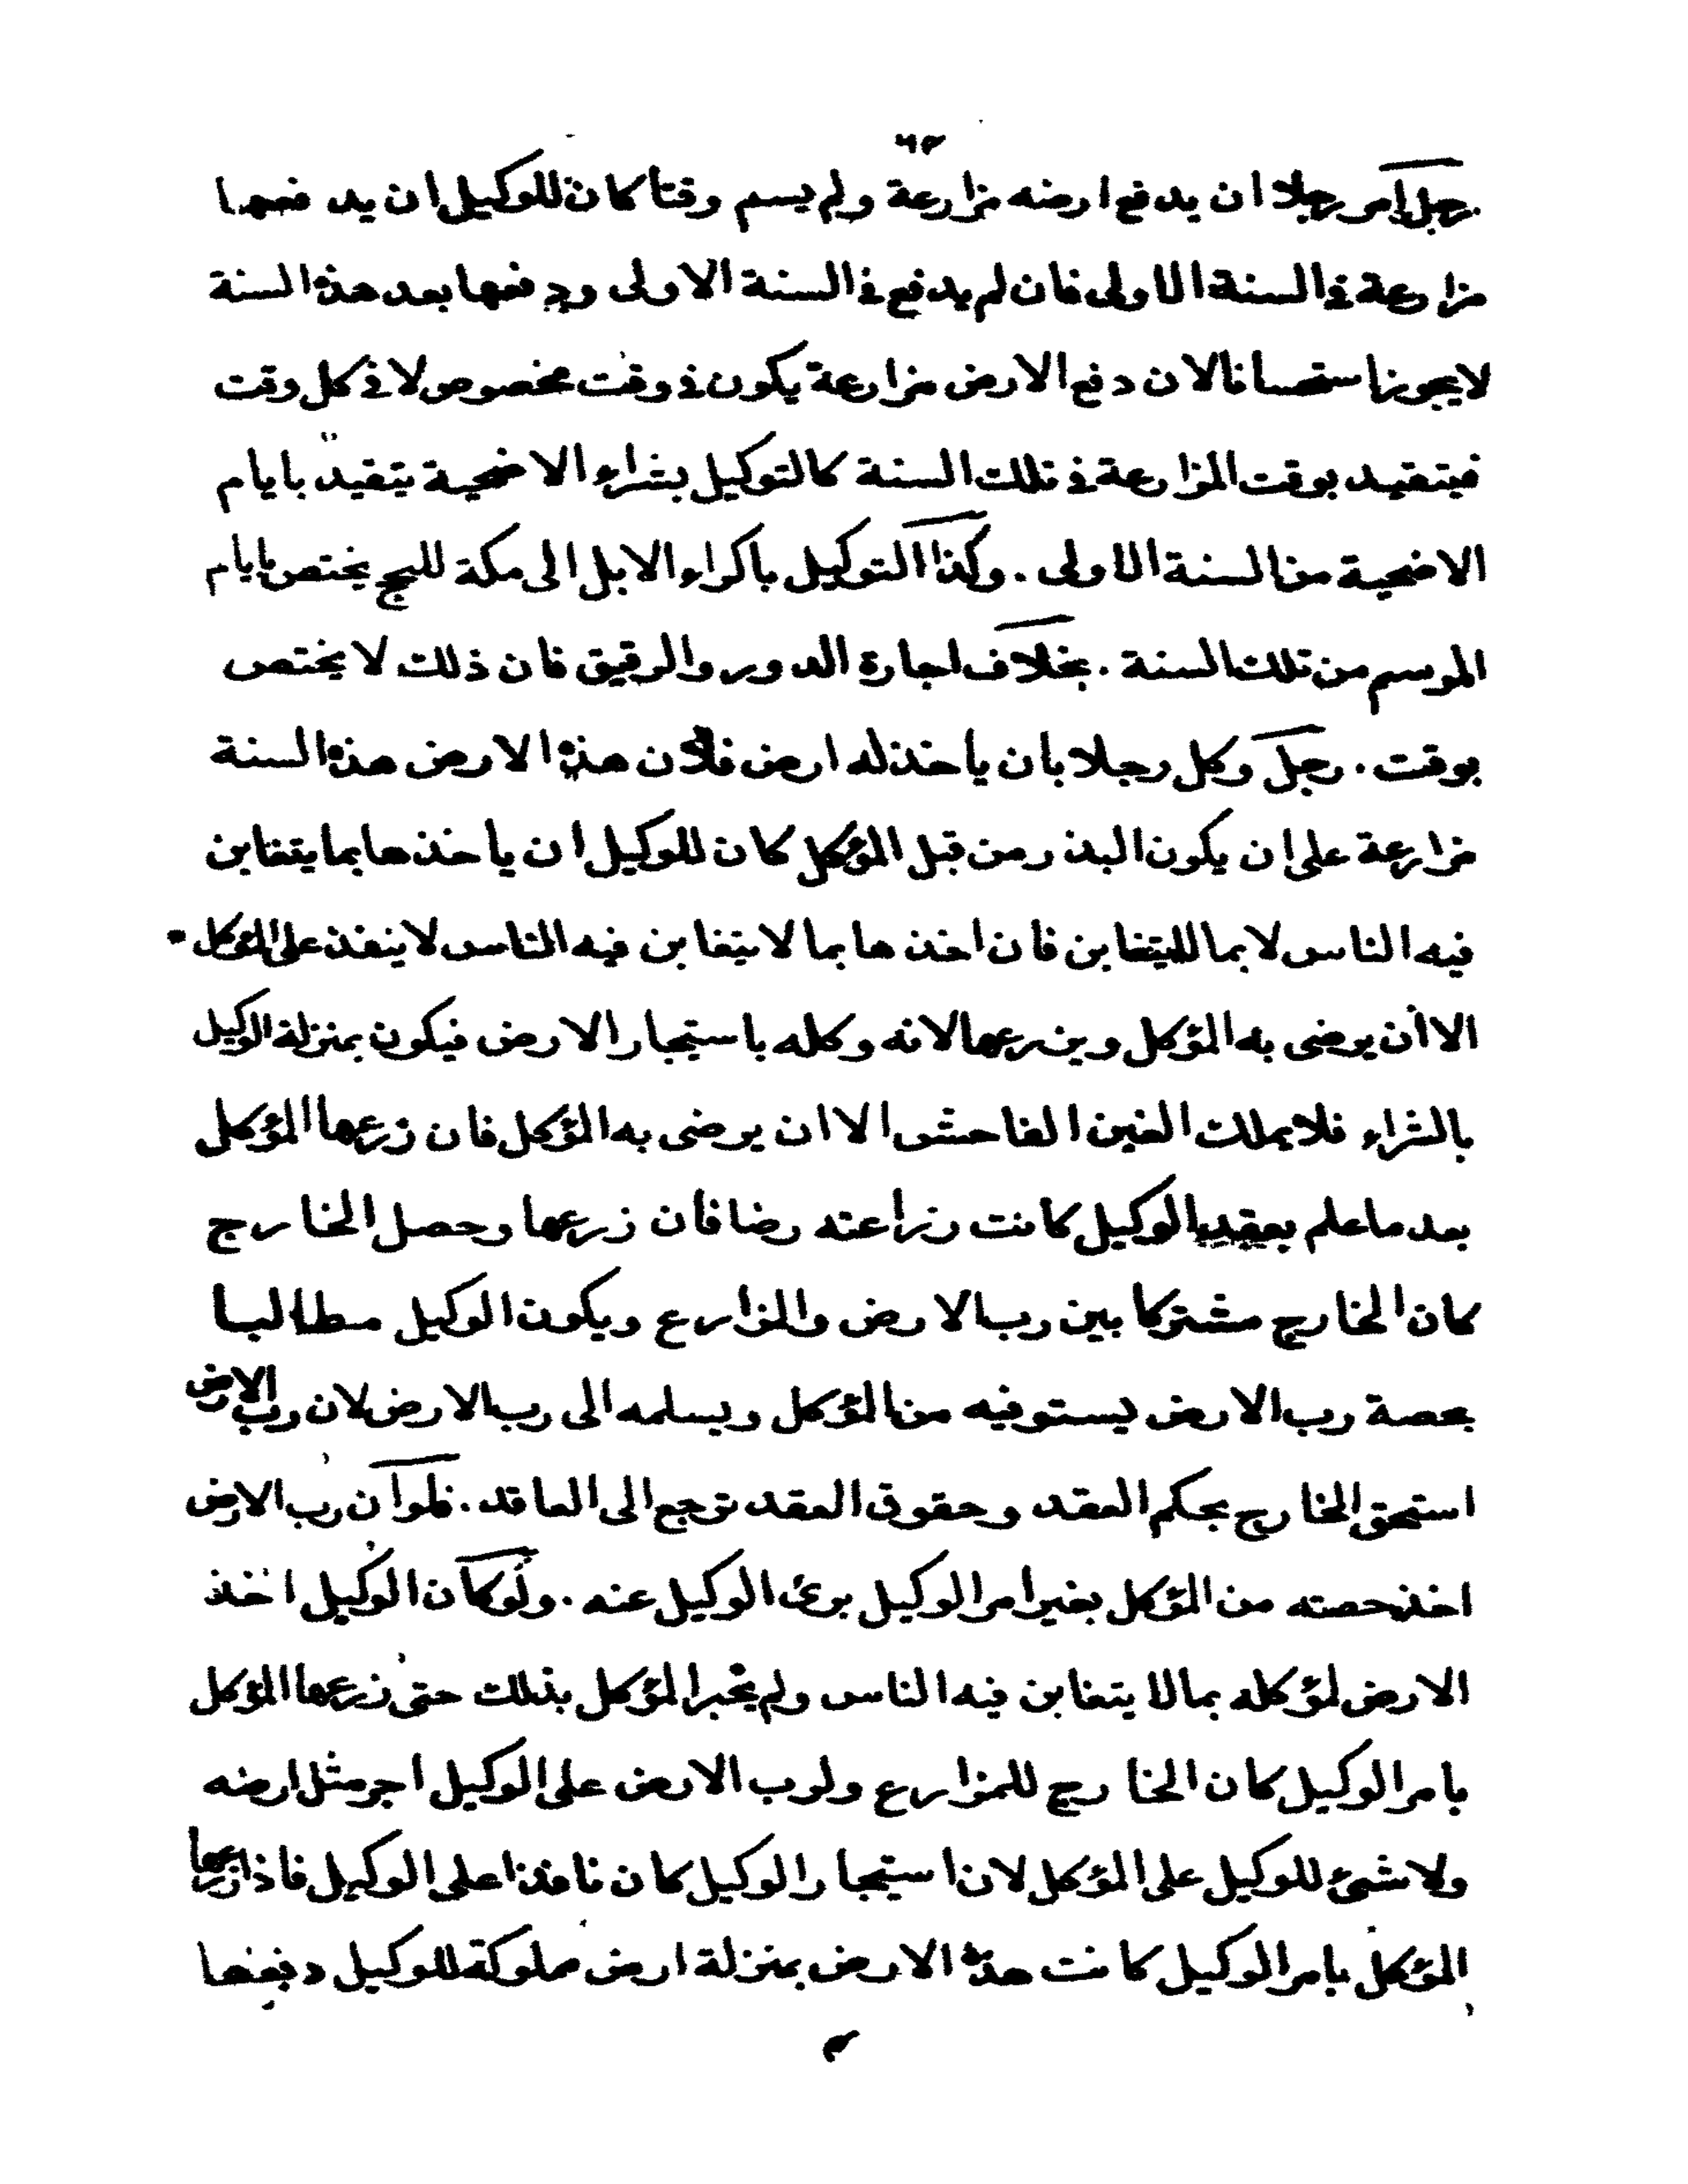 ٦٢
رجل امر رجلا ان يدفع ارضه مزارعة ولم يسم وقتا كان للوكيل ان يدفعها
مزارعة فى السنة الاولى فان لم يدفع فى السنة الاولى ودفعها بعد هذه السنة
لايجوز استحسانا لان دفع الارض مزارعة يكون فى وقت مخصوص لا فى كل وقت
فيتقيد بوقت المزارعة فى تلك السنة كالتوكيل بشراء الاضحية يتقيد بايام
الاضحية من السنة الاولى . وكذا التوكيل باكراء الابل الى مكة للحج يختص بايام
الموسم من تلك السنة . بخلاف اجارة الدور والرقيق فان ذلك لا يختص
بوقت . رجل وكل رجلا بان يأخذ له ارض فلان هذه الارض هذه السنة
مزارعة على ان يكون البذر من قبل المؤكل كان للوكيل ان يأخذها بما يتغابن
فيه الناس لا بما لا يتغابن فان اخذها بما لا يتغابن فيه الناس لا ينفذ على المؤكل .
الا أن يرضى به المؤكل ويزرعها لانه وكله باستيجار الارض فيكون بمنزلة الوكيل
بالشراء فلا يملك الغبن الفاحش الا ان يرضى به المؤكل فان زرعها المؤكل
بعد ما علم بعقد الوكيل كانت زراعته رضا فان زرعها وحصل الخارج
كان الخارج مشتركا بين رب الارض والمزارع ويكون الوكيل مطالبا
بحصة رب الارض يستوفيه من المؤكل ويسلمه الى رب الارض لان رب الارض
استحق الخارج بحكم العقد وحقوق العقد ترجع الى العاقد . فلو أن رب الارض
اخذ حصته من المؤكل بغير امر الوكيل برئ الوكيل عنه . ولو كان الوكيل اخذ
الارض لمؤكله بما لا يتغابن فيه الناس ولم يخبر المؤكل بذلك حتى زرعها المؤكل
بامر الوكيل كان الخارج للمزارع ولرب الارض على الوكيل اجر مثل ارضه
ولا شئ للوكيل على المؤكل لان استيجار الوكيل كان نافذا على الوكيل فاذا زرعها
المؤكل بامر الوكيل كانت هذه الارض بمنزلة ارض مملوكة للوكيل دفعها